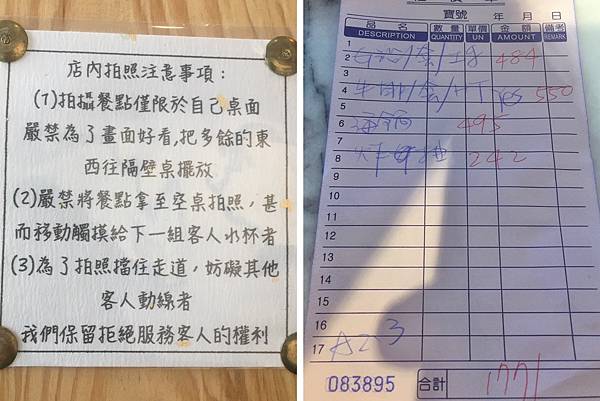 店內拍照注意事項：
(1)拍攝餐點僅限於自己桌面
嚴禁為了畫面好看,把多餘的東
西往隔壁桌擺放
(2)嚴禁將餐點拿至空桌拍照，甚
而移動觸摸給下一組客人水杯者
(3)為了拍照擋住走道，妨礙其他
客人動線者
我們保留拒絕服務客人的權利
寶號 年 月 日
品名 數量 單價 金額 備考
DESCRIPTION QUANTITY UN AMOUNT REMARK
1
2 484
3
4 550
5
6 495
7
8 242
9
10
11
12
13
14
15
16
17 A2 3
083895 合計 1771